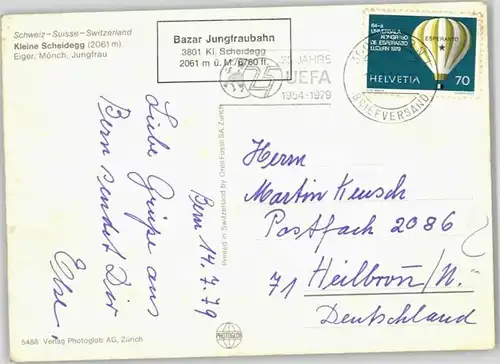 Schweiz - Suisse - Switzerland
Kleine Scheidegg (2061 m)
Eiger, Mönch, Jungfrau
Bazar Jungfraubahn
3801 Kl. Scheidegg
2061 m ü. M./6760 ft
25 JAHRS
UEFA
1954-1979
BRIEFVERSAND
64-a
UNIVERSALA
KONGRESO
DE ESPERANTO
LUZERN 1979
ESPERANTO
HELVETIA 70
Bern 14.7.79
Liebe Grüße aus
Bern sendet Dir
Else,
Printed in Switzerland by Orell Füssli SA, Zurich
Herrn
Martin Keusch
Postfach 2086
71 Heilbronn/N.
Deutschland
PHOTOGLOB
5488 Verlag Photoglob AG, Zürich